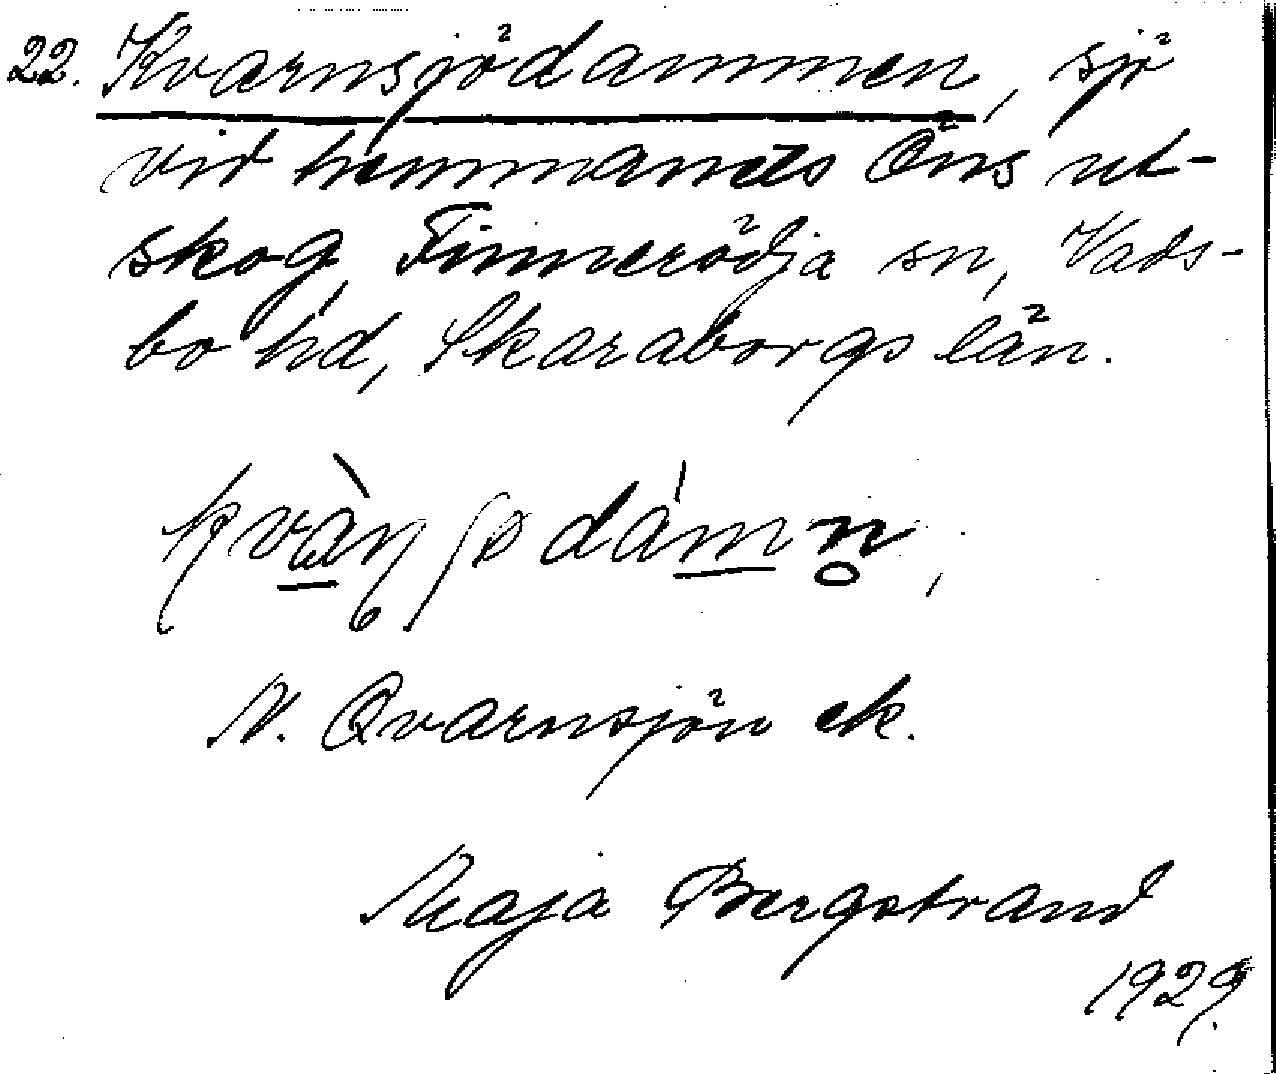 22. Kvarnsjödammen, sjö
vid hemmanets Öns ut-
skog, Finnerödja sn, Vads-
bo hd, Skaraborgs län.
N. Qvarnsjön ek.
Maja Bergstrand
1929.